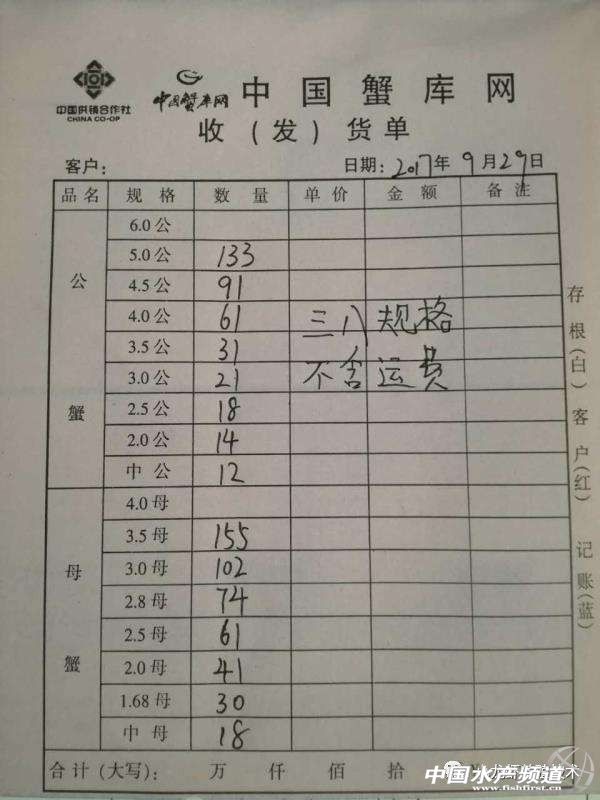 中国供销合作社 中国蟹库网 中国蟹库网
CHINA CO-OP
收（发）货单
客户： 日期：2017年9月29日
品名 规格 数量 单价 金额 备注
公蟹
6.0公
5.0公 133
4.5公 91
4.0公 61 三八规格
3.5公 31
3.0公 21 不含运费
2.5公 18
2.0公 14
中公 12
母蟹
4.0母
3.5母 155
3.0母 102
2.8母 74
2.5母 61
2.0母 41
1.68母 30
中母 18
合计（大写）： 万 仟 佰 拾
存根（白） 客户（红） 记账（蓝）
中国水产频道
www.fishfirst.cn